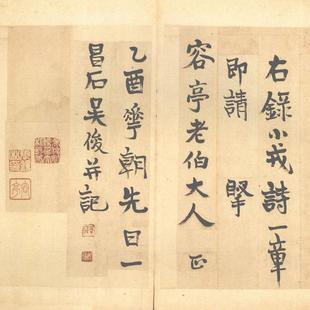 右錄小戎詩一章
即請 擊
容亭老伯大人 正
乙酉華朝先日一
昌石吴俊并記